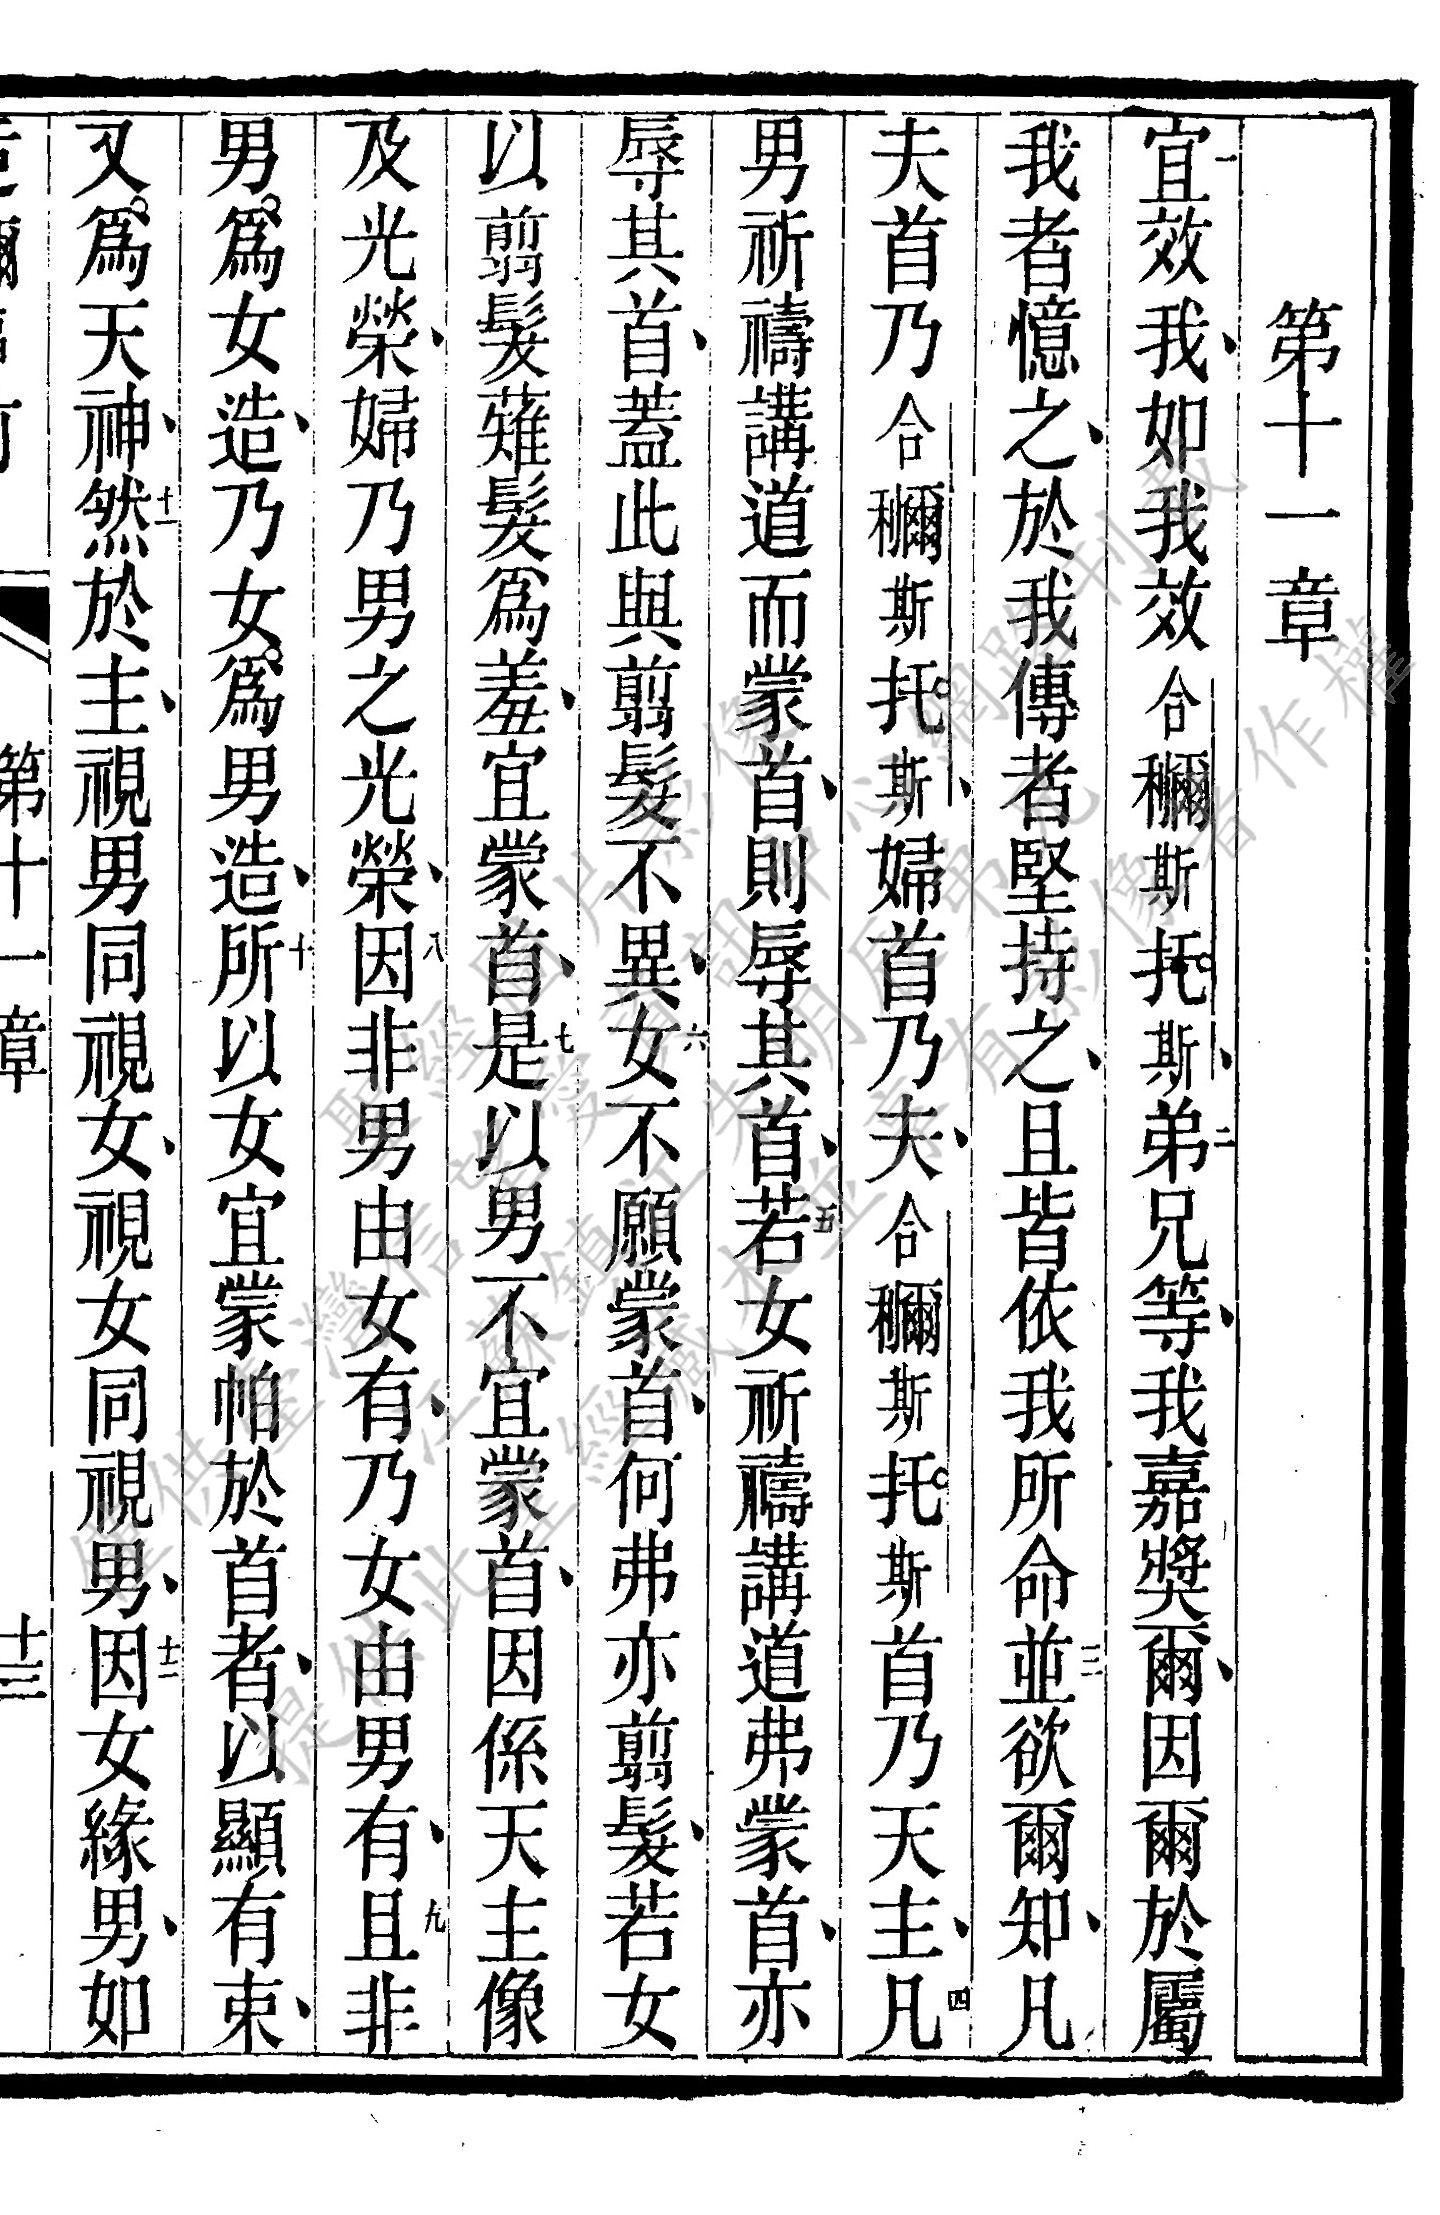 第十一章
一宜效我、如我效合穪斯托斯、二弟兄等、我嘉獎爾、因爾於屬
我者憶之、於我傳者堅持之、且皆依我所命三並欲爾知、凡
夫首乃合穪斯托斯、婦首乃夫、合穪斯托斯首乃天主、四凡
男祈禱講道而蒙首、則辱其首、五若女祈禱講道弗蒙首、亦
辱其首、蓋此與翦髮不異、六女不願蒙首、何弗亦翦髮、若女
以翦髮薙髮爲羞、宜蒙首、七是以男不宜蒙首、因係天主像
及光榮、婦乃男之光榮、八因非男由女有、乃女由男有、九且非
男爲女造、乃女爲男造、十所以女宜蒙帕於首者、以顯有束、
又爲天神、十一然於主、視男同視女、視女同視男、十二因女緣男、如
第十一章 十三
聖經圖片影像
僅供臺灣信望愛資訊中心網路刊載
提供此聖經藏本並享有影像著作權